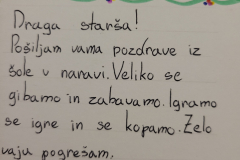 Draga starša!
Pošiljam vama pozdrave iz
šole v naravi. Veliko se
gibamo in zabavamo. Igramo
se igre in se kopamo. Zelo
vaju pogrešam.